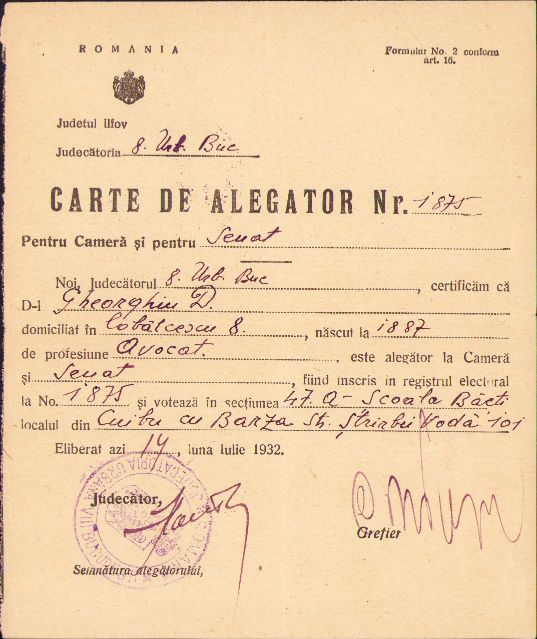 ROMANIA
Formular No. 2 conform
art. 16.
Judetul Ilfov
Judecătoria 8. Urb. Buc
CARTE DE ALEGATOR Nr. 1875
Pentru Cameră și pentru Senat
Noi, Judecătorul 8. Urb Buc, certificăm că
D-l Gheorghiu D.
domiciliat în Cobălcescu 8., născut la 1887
de profesiune Avocat., este alegător la Cameră
și Senat, fiind inscris in registrul electoral
la No. 1875 și votează in secțiunea 47. A - Scoala Băeț
localul din Cuibu cu Barza Str. Știrbei Vodă 101
Eliberat azi 14, luna Iulie 1932.
Judecător,
Grefier
Semnătura alegătorului,